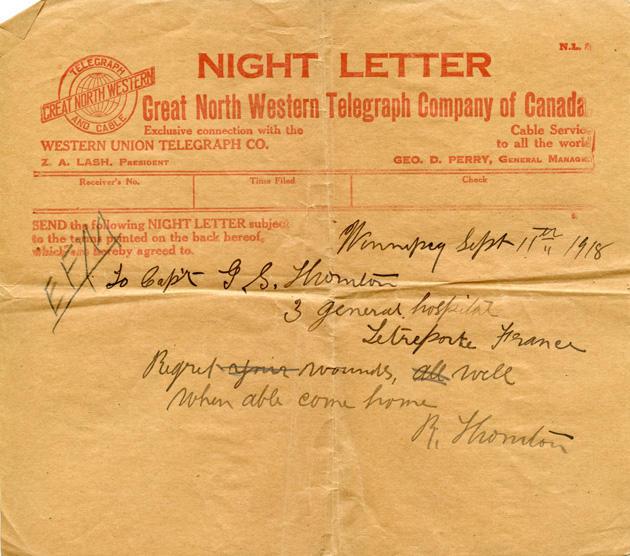 N.L.
NIGHT LETTER
TELEGRAPH
GREAT NORTH WESTERN
AND CABLE
Great North Western Telegraph Company of Canada
Exclusive connection with the
WESTERN UNION TELEGRAPH CO.
Cable Service
to all the world
Z. A. LASH, PRESIDENT
GEO. D. PERRY, GENERAL MANAGE
Receiver's No. Time Filed Check
SEND the following NIGHT LETTER subject
to the terms printed on the back hereof,
which are hereby agreed to.
Winnipeg Sept 11th 1918
To Capt G S. Thornton
3 General hospital
Letreporte France
Regret your wounds, all well
When able come home
R. Thornton